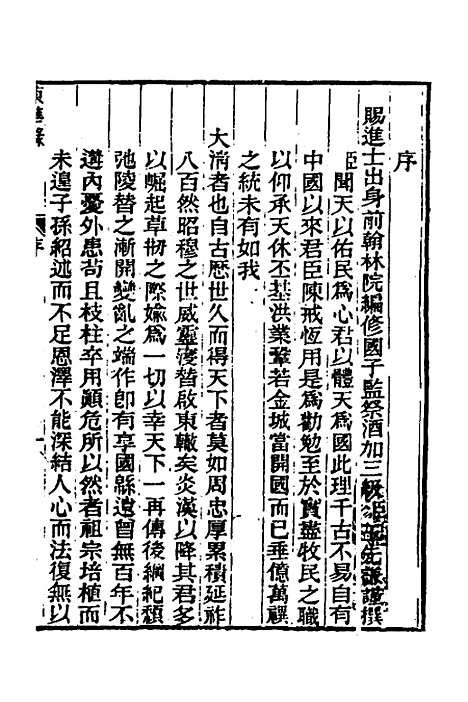 序
賜進士出身前翰林院編修國子監祭酒加三級臣王先謙謹撰
臣聞天以佑民爲心君以體天爲國此理千古不易自有
中國以來君臣陳戒恆用是爲勸勉至於實盡牧民之職
以仰承天休丕基洪業鞏若金城當開國而已垂億萬禩
之統未有如我
大淸者也自古歷世久而得天下者莫如周忠厚累積延祚
八百然昭穆之世威靈寖替啟東轍矣炎漢以降其君多
以崛起草剏之際婾爲一切以幸天下一再傳後綱紀頹
弛陵替之漸開變亂之端作卽有享國緜遠曾無百年不
遘內憂外患苟且枝柱卒用顚危所以然者祖宗培植而
未遑子孫紹述而不足恩澤不能深結人心而法復無以
東華錄
序